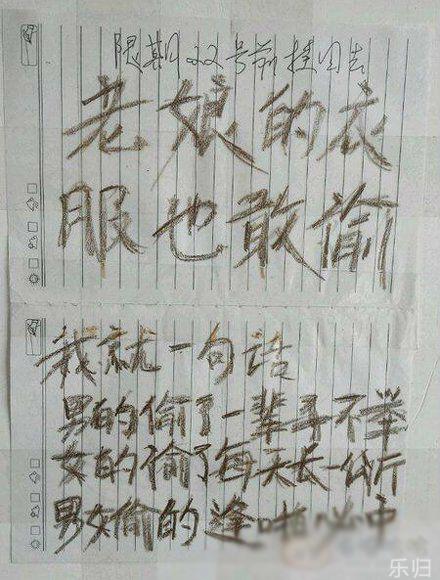 限期22号前挂回去
老娘的衣
服也敢偷
我就一句话
男的偷了一辈子不举
女的偷了每天长一公斤
男女偷的逢啪必中
乐归